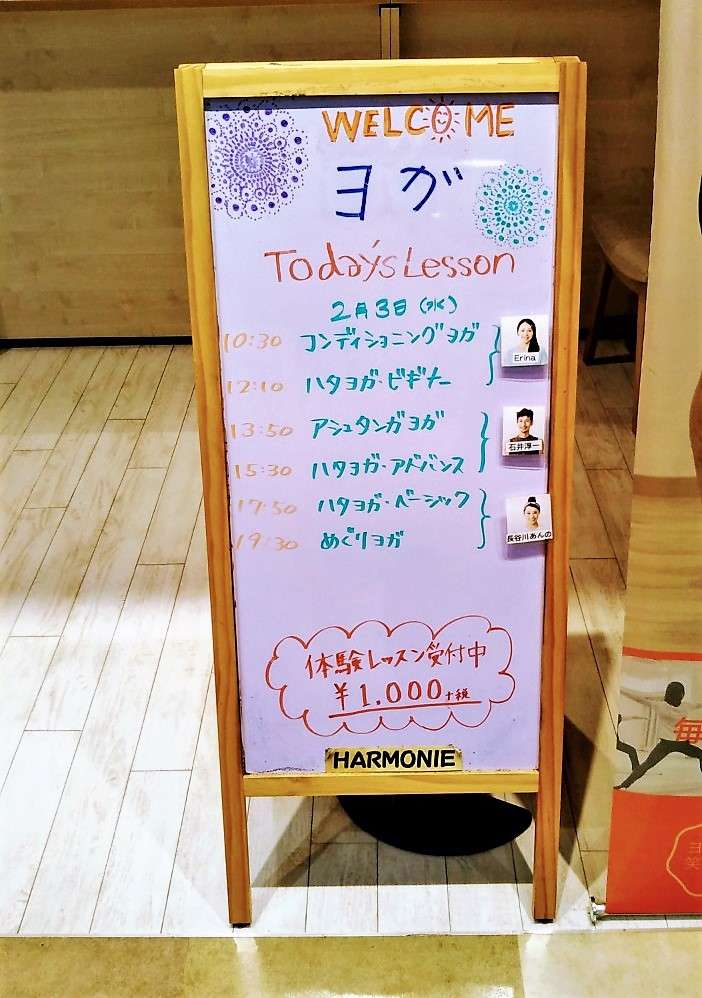 WELCOME
ヨガ
Today's Lesson
2月3日(水)
10:30 コンディショニングヨガ
Erina
12:10 ハタヨガ・ビギナー
13:50 アシュタンガヨガ
石井淳一
15:30 ハタヨガ・アドバンス
17:50 ハタヨガ・ベーシック
長谷川あんの
19:30 めぐりヨガ
体験レッスン受付中
¥1.000+税
HARMONIE
毎
ヨ
笑